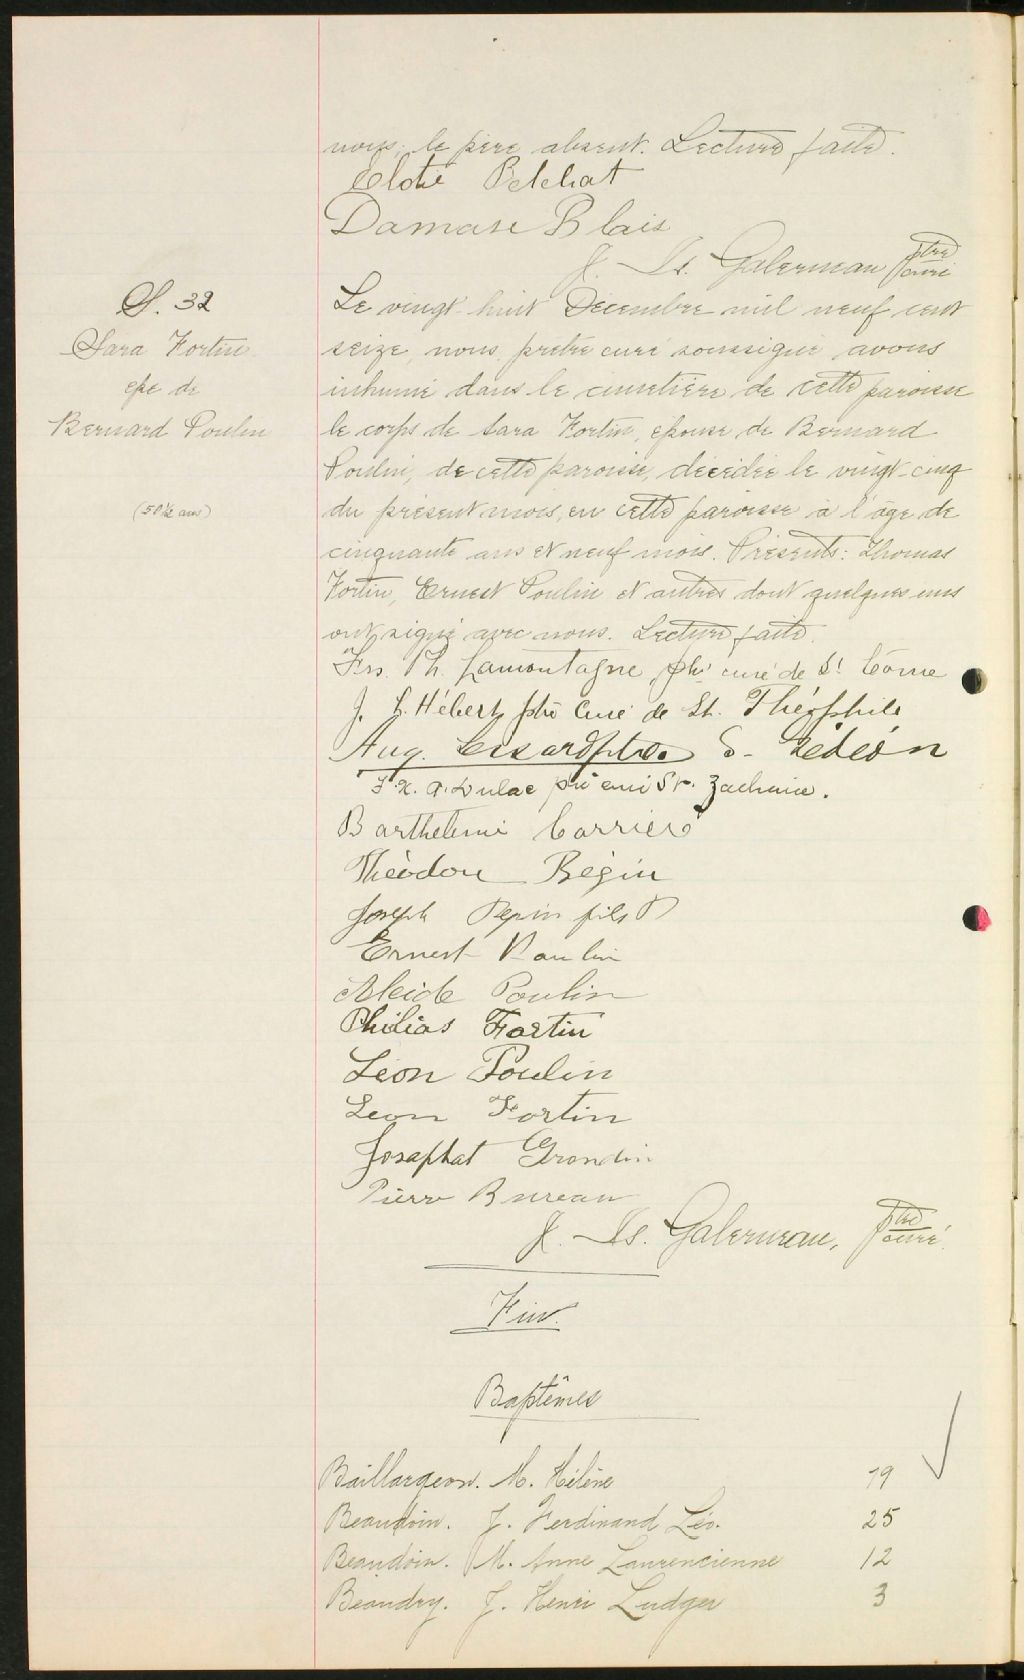 nous; le père absent. Lecture faite.
Elotié Pelchat
Damase Blais
J. Ls. Galerneau ptre curé
S. 32
Sara Fortin
épse de
Bernard Poulin
(50 ¾ ans)
Le vingt-huit Décembre mil neuf cent
seize, nous, prêtre curé soussigné avons
inhumé dans le cimetière de cette paroisse
le corps de Sara Fortin, épouse de Bernard
Poulin, de cette paroisse, décédée le vingt-cinq
du présent mois, en cette paroisse à l'âge de
cinquante ans et neuf mois. Présents: Thomas
Fortin, Ernest Poulin et autres dont quelques uns
ont signé avec nous. Lecture faite.
Frs. Th. Lamontagne, ptr curé de St Côme
J. L. Hébert ptre Curé de St. Théophile
Aug. Lessard ptre. S- Gédéon
F. X. A. Dulac ptre curé St. Zacharie.
Barthelemi Carrier
Théodore Bégin
Joseph Pepin fils P
Ernest Poulin
Alcide Poulin
Philias Fortin
Léon Poulin
Leon Fortin
Josaphat Grondin
Pierre Bureau
J. Ls. Galerneau, ptre curé.
Fin.
Baptêmes
Baillargeon. M. Hélène 19
Beaudoin. J. Ferdinand Léo. 25
Beaudoin. M. Anne Laurencienne 12
Beaudry. J. Henri Ludger 3